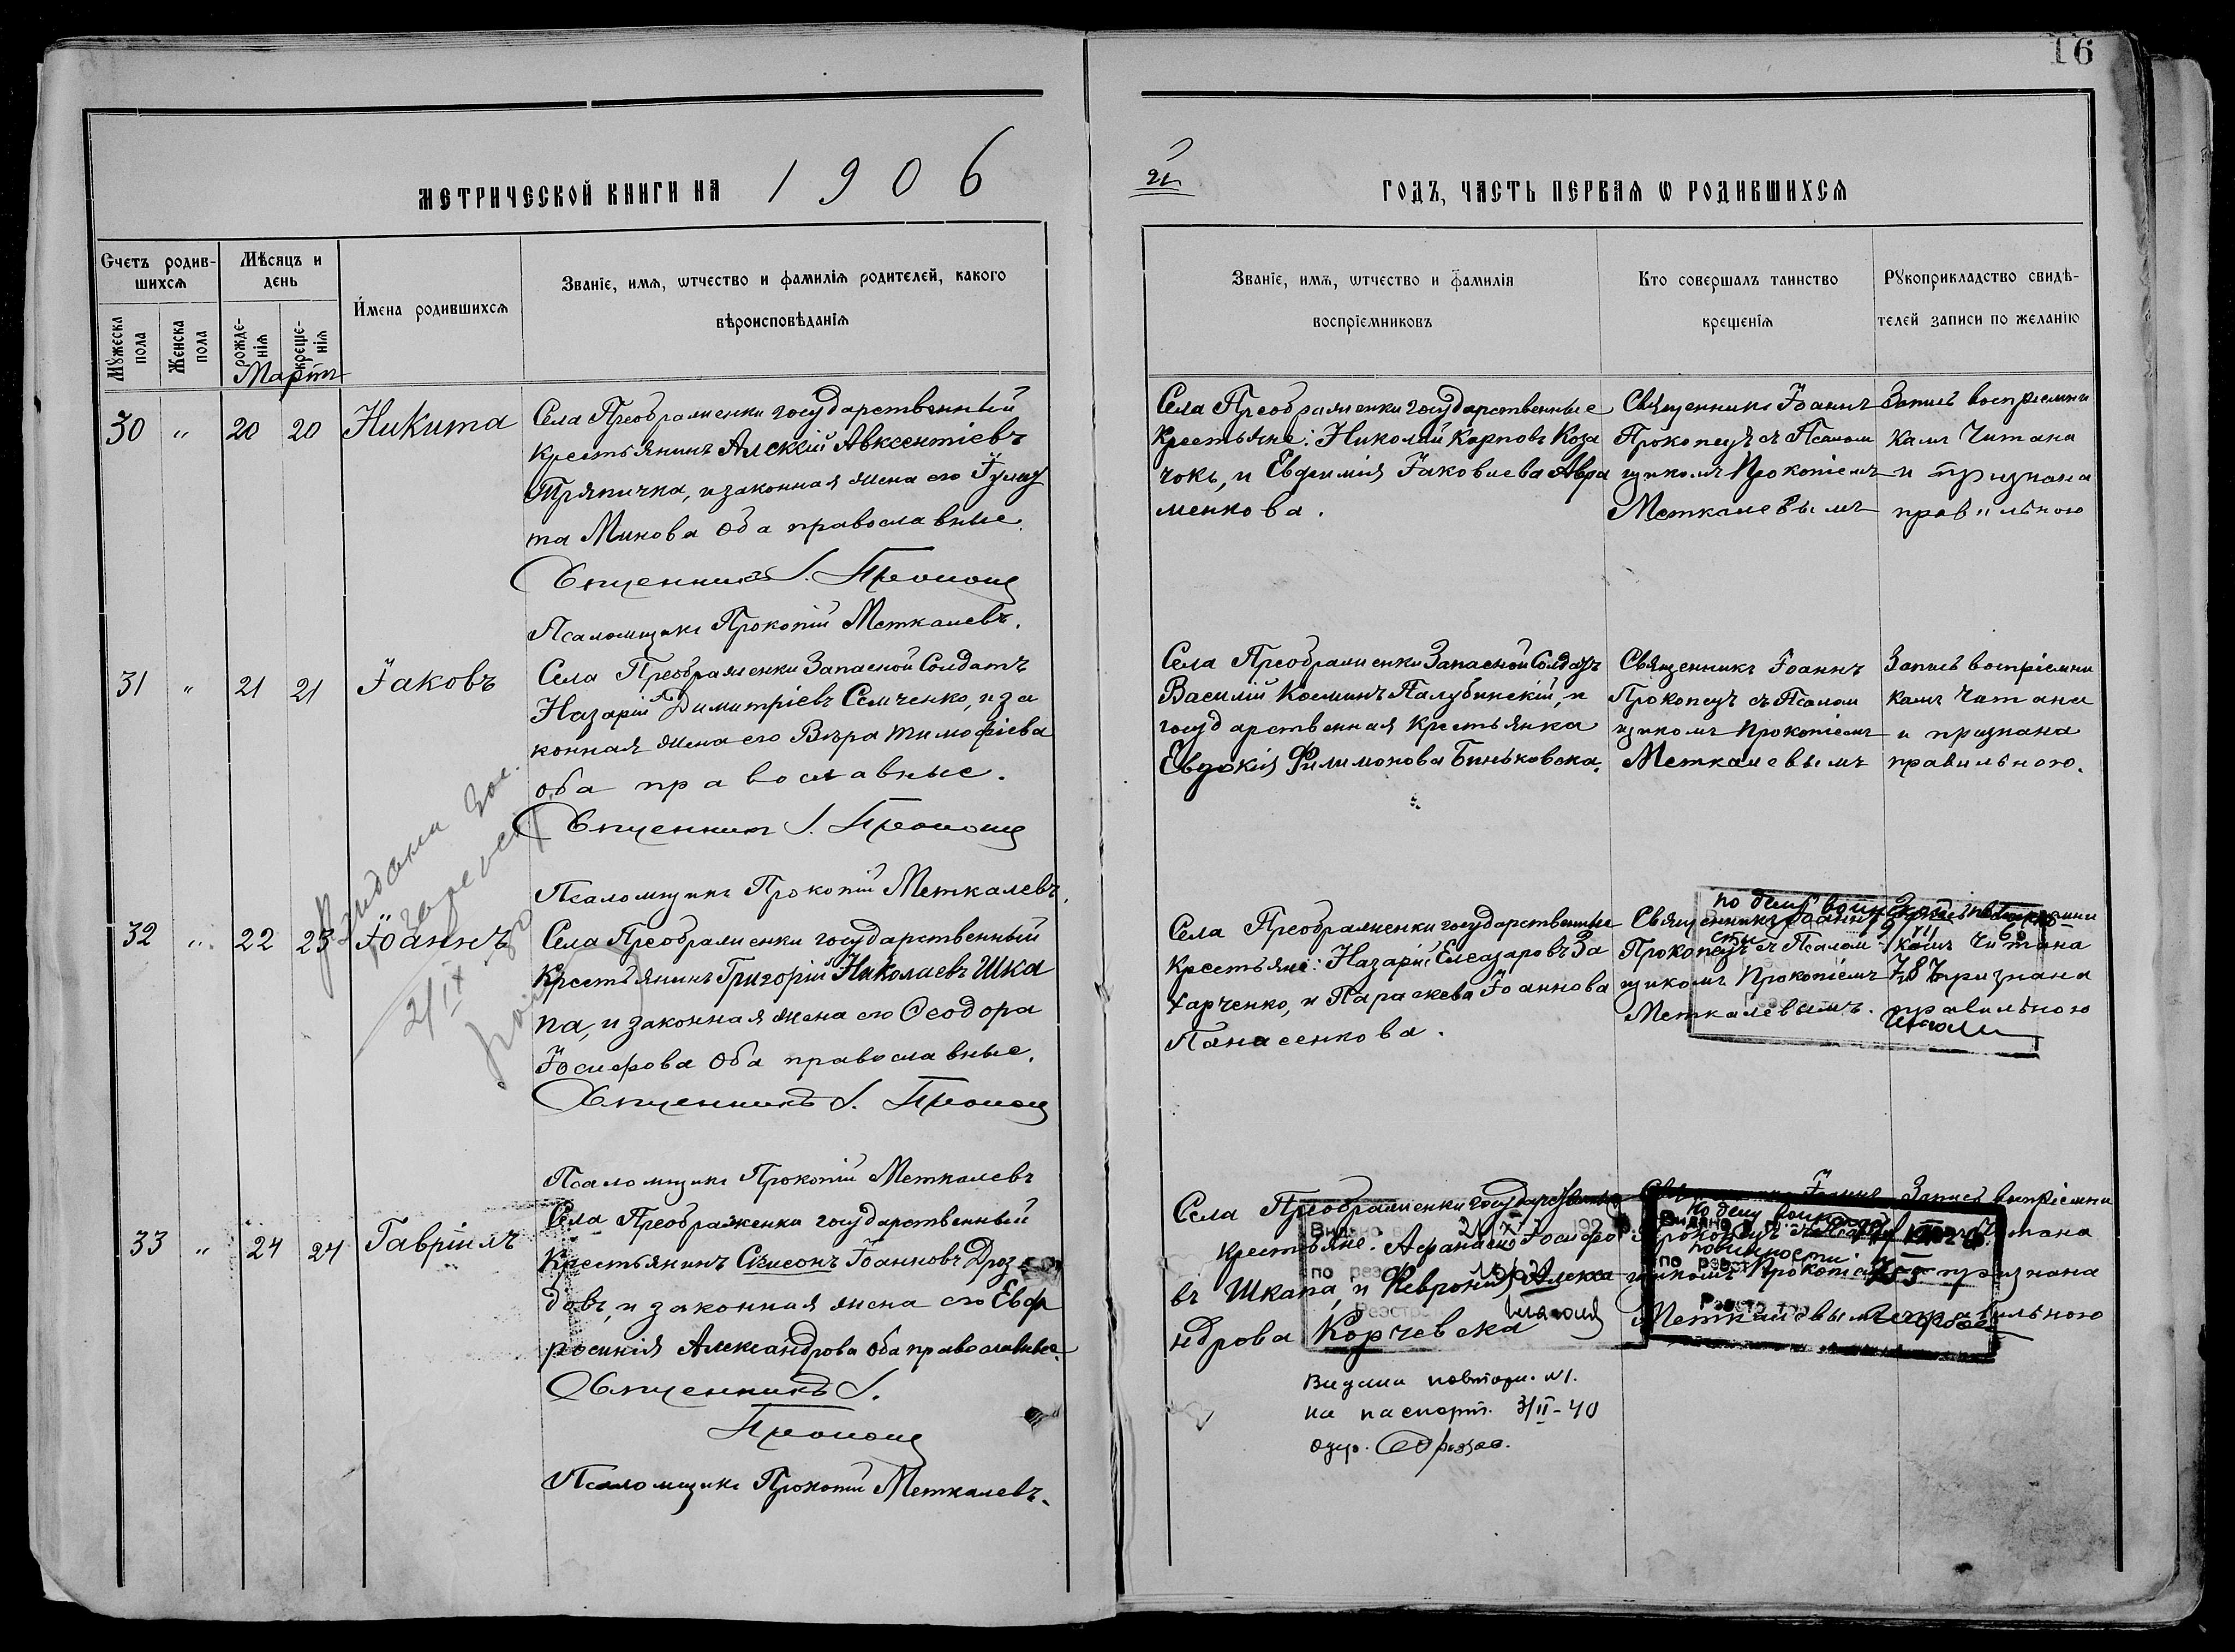 16
МЕТРИЧЕСКОЙ КНИГИ НА 1906
й
ГОДЪ, ЧАСТЬ ПЕРВАѦ Ѡ РОДИВШИХСѦ
Счетъ родив-
шихсѧ
Мѣсяцъ и
день
Имена родившихсѧ
Званіе, имѧ, ѡтчество и фамиліѧ родителей, какого
вѣроисповѣданіѧ
Мꙋжеска
пола
Женска
пола
рожде-
ніѧ
креще-
ніѧ
Мартъ
Званіе, имѧ, ѡтчество и фамиліѧ
воспріемниковъ
Кто совершалъ таинство
крещеніѧ
Рꙋкоприкладство свидѣ-
телей записи по желанію
30 " 20 20 Никита
Села Преображенки государственный
крестьянинъ Алексій Авксентіевъ
Тряпичка, и законная жена его Іулит
та Минова оба православные.
Священникъ І. Прокопец
Псаломщикъ Прокопій Меткалевъ.
Села Преображенки государственные
крестьяне: Николай Карповъ Коза
чокъ, и Евфимія Іаковлева Авра
менкова.
Священникъ Іоаннъ
Прокопецъ съ Псалом
щикомъ Прокопіемъ
Меткалевымъ
Запись воспріемни
камъ читана
и признана
правильною
31 " 21 21 Іаковъ
Села Преображенки Запасной Солдатъ
Назарій Димитріевъ Семченко, и за
конная жена его Вѣра Тимофіева
оба православные.
Священникъ І. Прокопец
Псаломщикъ Прокопій Меткалевъ.
Села Преображенки Запасной Солдатъ
Василій Косминъ Палубинскій, и
государственная крестьянка
Евдокія Филимонова Биньковска.
Священникъ Іоаннъ
Прокопецъ съ Псалом
щикомъ Прокопіемъ
Меткалевымъ
Запись воспріемни
камъ читана
и признана
правильною.
32 " 22 23 Іоаннъ
2/IX
Села Преображенки государственный
крестьянинъ Григорій Николаевъ Шка
па, и законная жена его Ѳеодора
Іосифова оба православные.
Священникъ І. Прокопец
Псаломщикъ Прокопій Меткалевъ
Села Преображенки государственные
крестьяне: Назарій Елеазаровъ За
харченко, и Параскева Іоаннова
Панасенкова.
Священникъ Іоаннъ
Прокопецъ съ Псалом
щикомъ Прокопіемъ
Меткалевымъ.
Запись воспріемни
камъ читана
и признана
правильною
33 " 24 24 Гавріилъ
Села Преображенки государственный
крестьянинъ Сѵмеонъ Іоанновъ Дроз
довъ, и законная жена его Евф
росинія Александрова оба православные.
Священникъ І.
Прокопец
Псаломщикъ Прокопій Меткалевъ.
Села Преображенки государственные
крестьяне. Афанасій Іосифо
въ Шкапа, и Феврония Алекса
ндрова Корчевска
Прокопецъ
щикомъ Прокопіемъ
Меткалевымъ
Запись воспріемни
читана
признана
правильною
Видано
по реэстр
по делу воинской
повинности
Видали повторн. №1.
на паспорт. 3/II-40